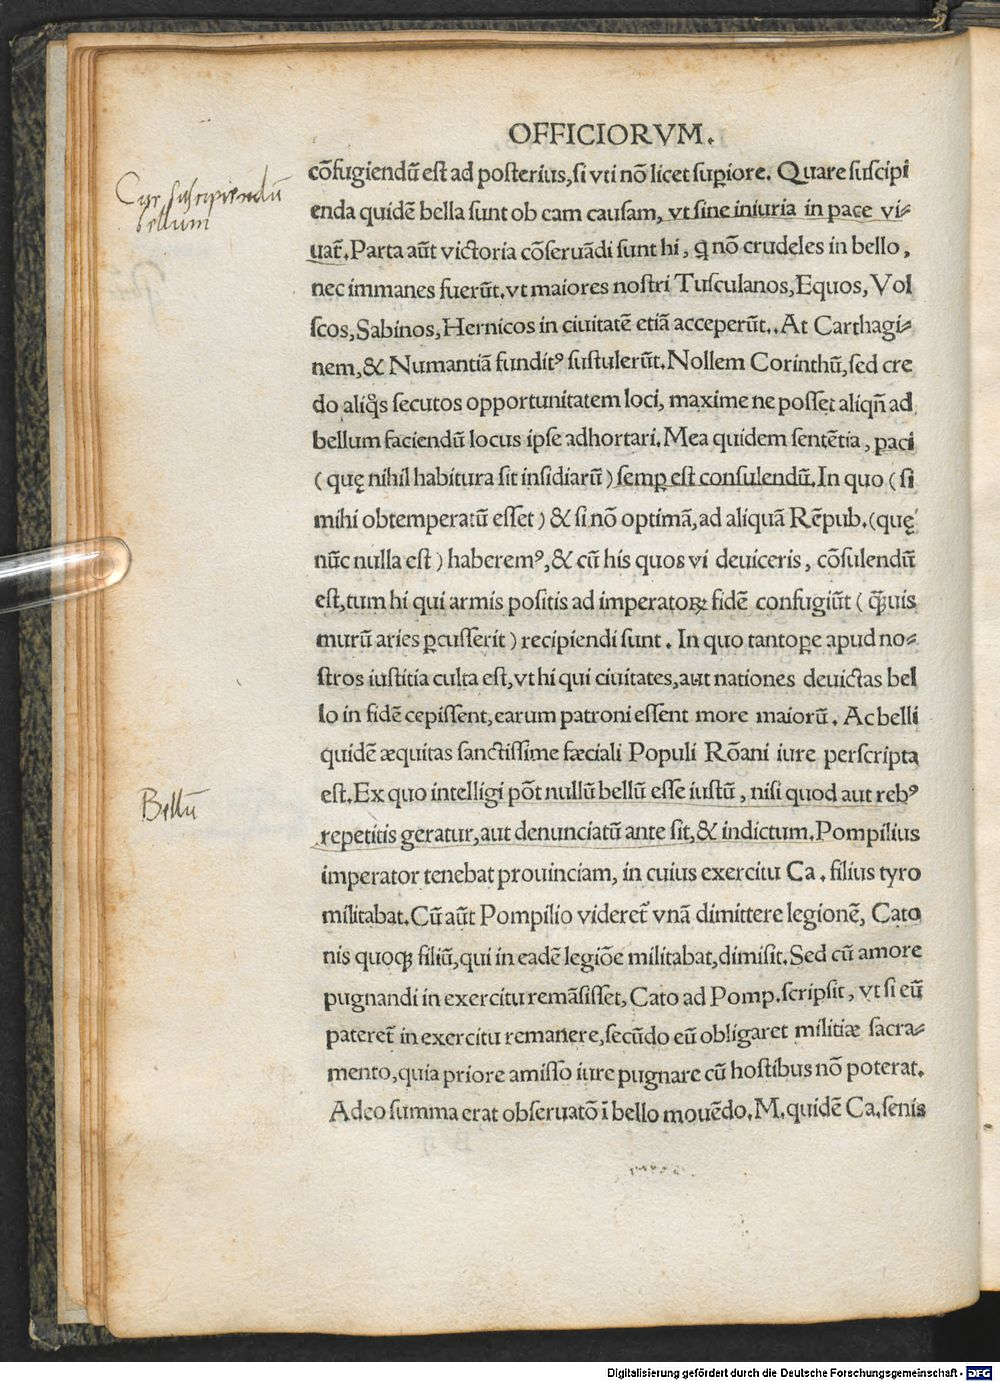 OFFICIORVM.
cōfugiendū est ad posterius, si vti nō licet supiore. Quare suscipi
Cur suscipiendū
bellum
enda quidē bella sunt ob eam causam, vt sine iniuria in pace vi-
uat̄. Parta aūt victoria cōseruādi sunt hi, q nō crudeles in bello,
nec immanes fuerūt. vt maiores nostri Tusculanos, Equos, Vol
scos, Sabinos, Hernicos in ciuitatē etiā acceperūt.. At Carthagi-
nem, & Numantiā fundit⁹ sustulerūt. Nollem Corinthū, sed cre
do aliq̊s secutos opportunitatem loci, maxime ne posset aliqn̄ ad
bellum faciendū locus ipse adhortari. Mea quidem sentētia, paci
(quę nihil habitura sit insidiarū) semꝑ est consulendū. In quo (si
mihi obtemperatū esset) & si nō optimā, ad aliquā Rēpub. (quę
nūc nulla est) haberem⁹, & cū his quos vi deuiceris, cōsulendū
est, tum hi qui armis positis ad imperatoꝝ fidē confugiūt (q̄uis
murū aries ꝑcusserit) recipiendi sunt. In quo tantoꝑe apud no-
stros iustitia culta est, vt hi qui ciuitates, aut nationes deuictas bel
lo in fidē cepissent, earum patroni essent more maiorū. Ac belli
quidē æquitas sanctissime fæciali Populi Rōani iure perscripta
Bellū
est. Ex quo intelligi pōt nullū bellū esse iustū, nisi quod aut reb⁹
repetitis geratur, aut denunciatū ante sit, & indictum. Pompilius
imperator tenebat prouinciam, in cuius exercitu Ca. filius tyro
militabat. Cū aūt Pompilio videret̄ vnā dimittere legionē, Cato
nis quoqꝫ filiū, qui in eadē legiōe militabat, dimisit. Sed cū amore
pugnandi in exercitu remāsisset, Cato ad Pomp. scripsit, vt si eū
pateret̄ in exercitu remanere, secūdo eū obligaret militiæ sacra-
mento, quia priore amisso iure pugnare cū hostibus nō poterat.
Adeo summa erat obseruatō ī bello mouēdo. M. quidē Ca. senis
Digitalisierung gefördert durch die Deutsche Forschungsgemeinschaft - DFG